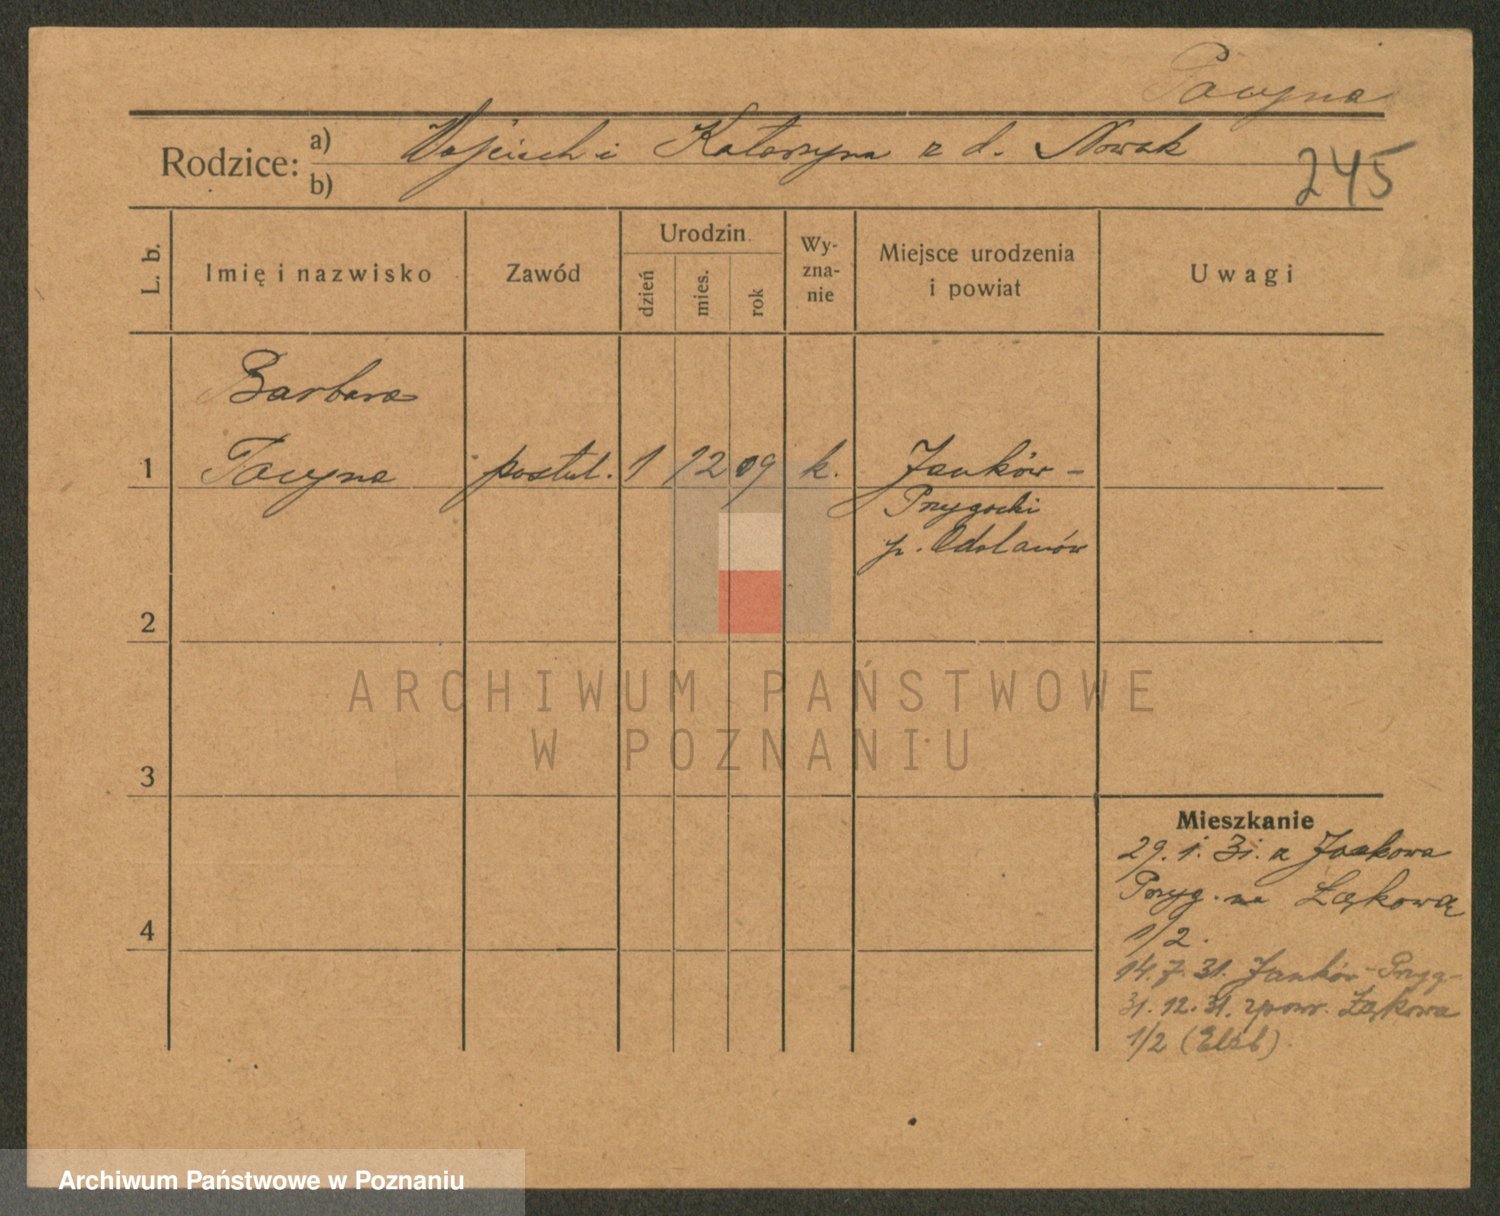 Pawyna
Rodzice:
a) Wojciech i Katarzyna z d. Nowak
b)
245
L. b.
Imię i nazwisko
Zawód
Urodzin
dzień
mies.
rok
Wy-
zna-
nie
Miejsce urodzenia
i powiat
Uwagi
Barbara
1 Pawyna postul. 1 12 09 k. Janków-
Przygocki
p. Odolanów
2
ARCHIWUM PAŃSTWOWE
W POZNANIU
3
Mieszkanie
29. 1. 31. z Jankowa
Przyg. na Łąkową
4
1/2.
14. 7. 31. Janków-Przyg-
31. 12. 31. zpow. Łąkowa
1/2 (Elżb).
Archiwum Państwowe w Poznaniu